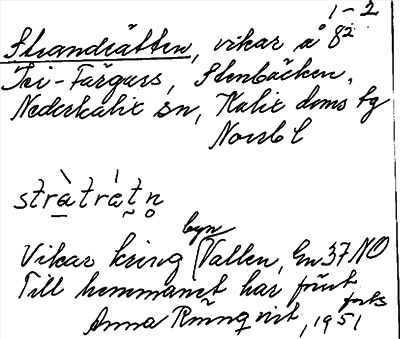 1-2
Strandrätten, vikar å 8²
Isi-Färgars, Stenbäcken,
Nederkalix sn, Kalix doms tg
Norrb l
strà̱trátn̥
byn
Vikar kring Vallen, Em 37 NO
Till hemmanet har förut
forts
Anna Rönnqvist, 1951